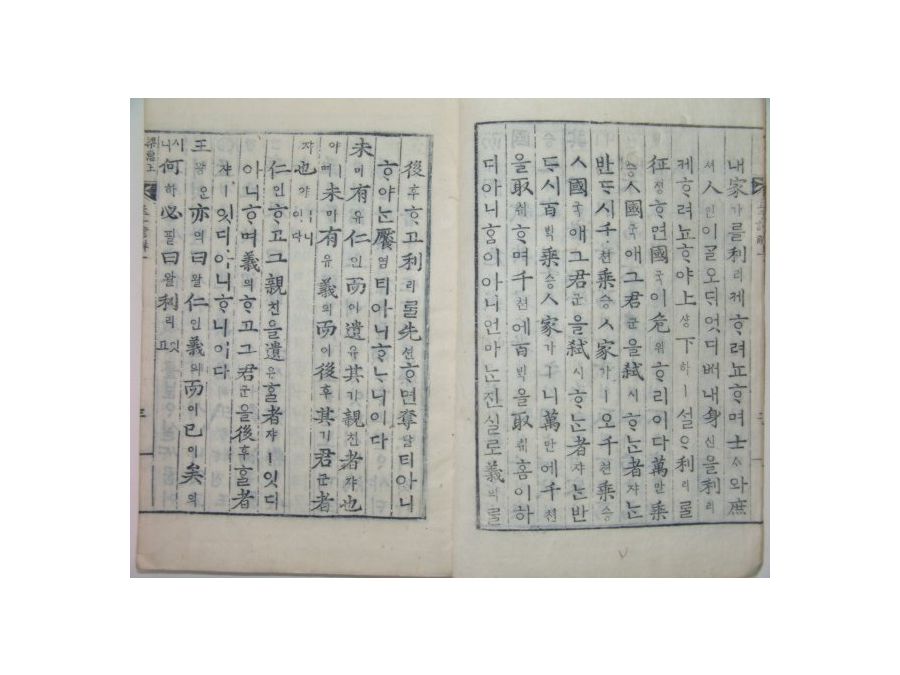 내家가를利리제ᄒᆞ려뇨ᄒᆞ며士ᄉᆞ와庶
셔人인이ᄀᆞᆯ오ᄃᆡ엇디ᄡᅥ내身신을利리
제ᄒᆞ려뇨ᄒᆞ야上샹下하ㅣ서ᄅᆞ利리ᄅᆞᆯ
征졍ᄒᆞ면國국이危위ᄒᆞ리이다萬만乘
승ㅅ國국애그君군을弑시ᄒᆞᄂᆞᆫ者쟈ᄂᆞᆫ
반ᄃᆞ시千쳔乘승ㅅ家가ㅣ오千쳔乘승
ㅅ國국애그君군을弑시ᄒᆞᄂᆞᆫ者쟈ᄂᆞᆫ반
ᄃᆞ시百ᄇᆡᆨ乘승ㅅ家가ㅣ니萬만에千쳔
을取ᄎᆔᄒᆞ며千쳔에百ᄇᆡᆨ을取ᄎᆔ홈이하
디아니홈이아니언마ᄂᆞᆫ진실로義의ᄅᆞᆯ
後후ᄒᆞ고利리ᄅᆞᆯ先션ᄒᆞ면奪탈티아니
ᄒᆞ야ᄂᆞᆫ饜염티아니ᄒᆞᄂᆞ니이다
未미有유仁인而이遺유其기親친者쟈也
야며未미有유義의而이後후其기君군者
쟈也야ㅣ니이다
仁인ᄒᆞ고그親친을遺유ᄒᆞᆯ者쟈ㅣ잇디
아니ᄒᆞ며義의ᄒᆞ고그君군을後후ᄒᆞᆯ者
쟈ㅣ잇디아니ᄒᆞ니이다
王왕은亦역曰왈仁인義의而이已이矣의
시니何하必필曰왈利리잇고
梁惠王